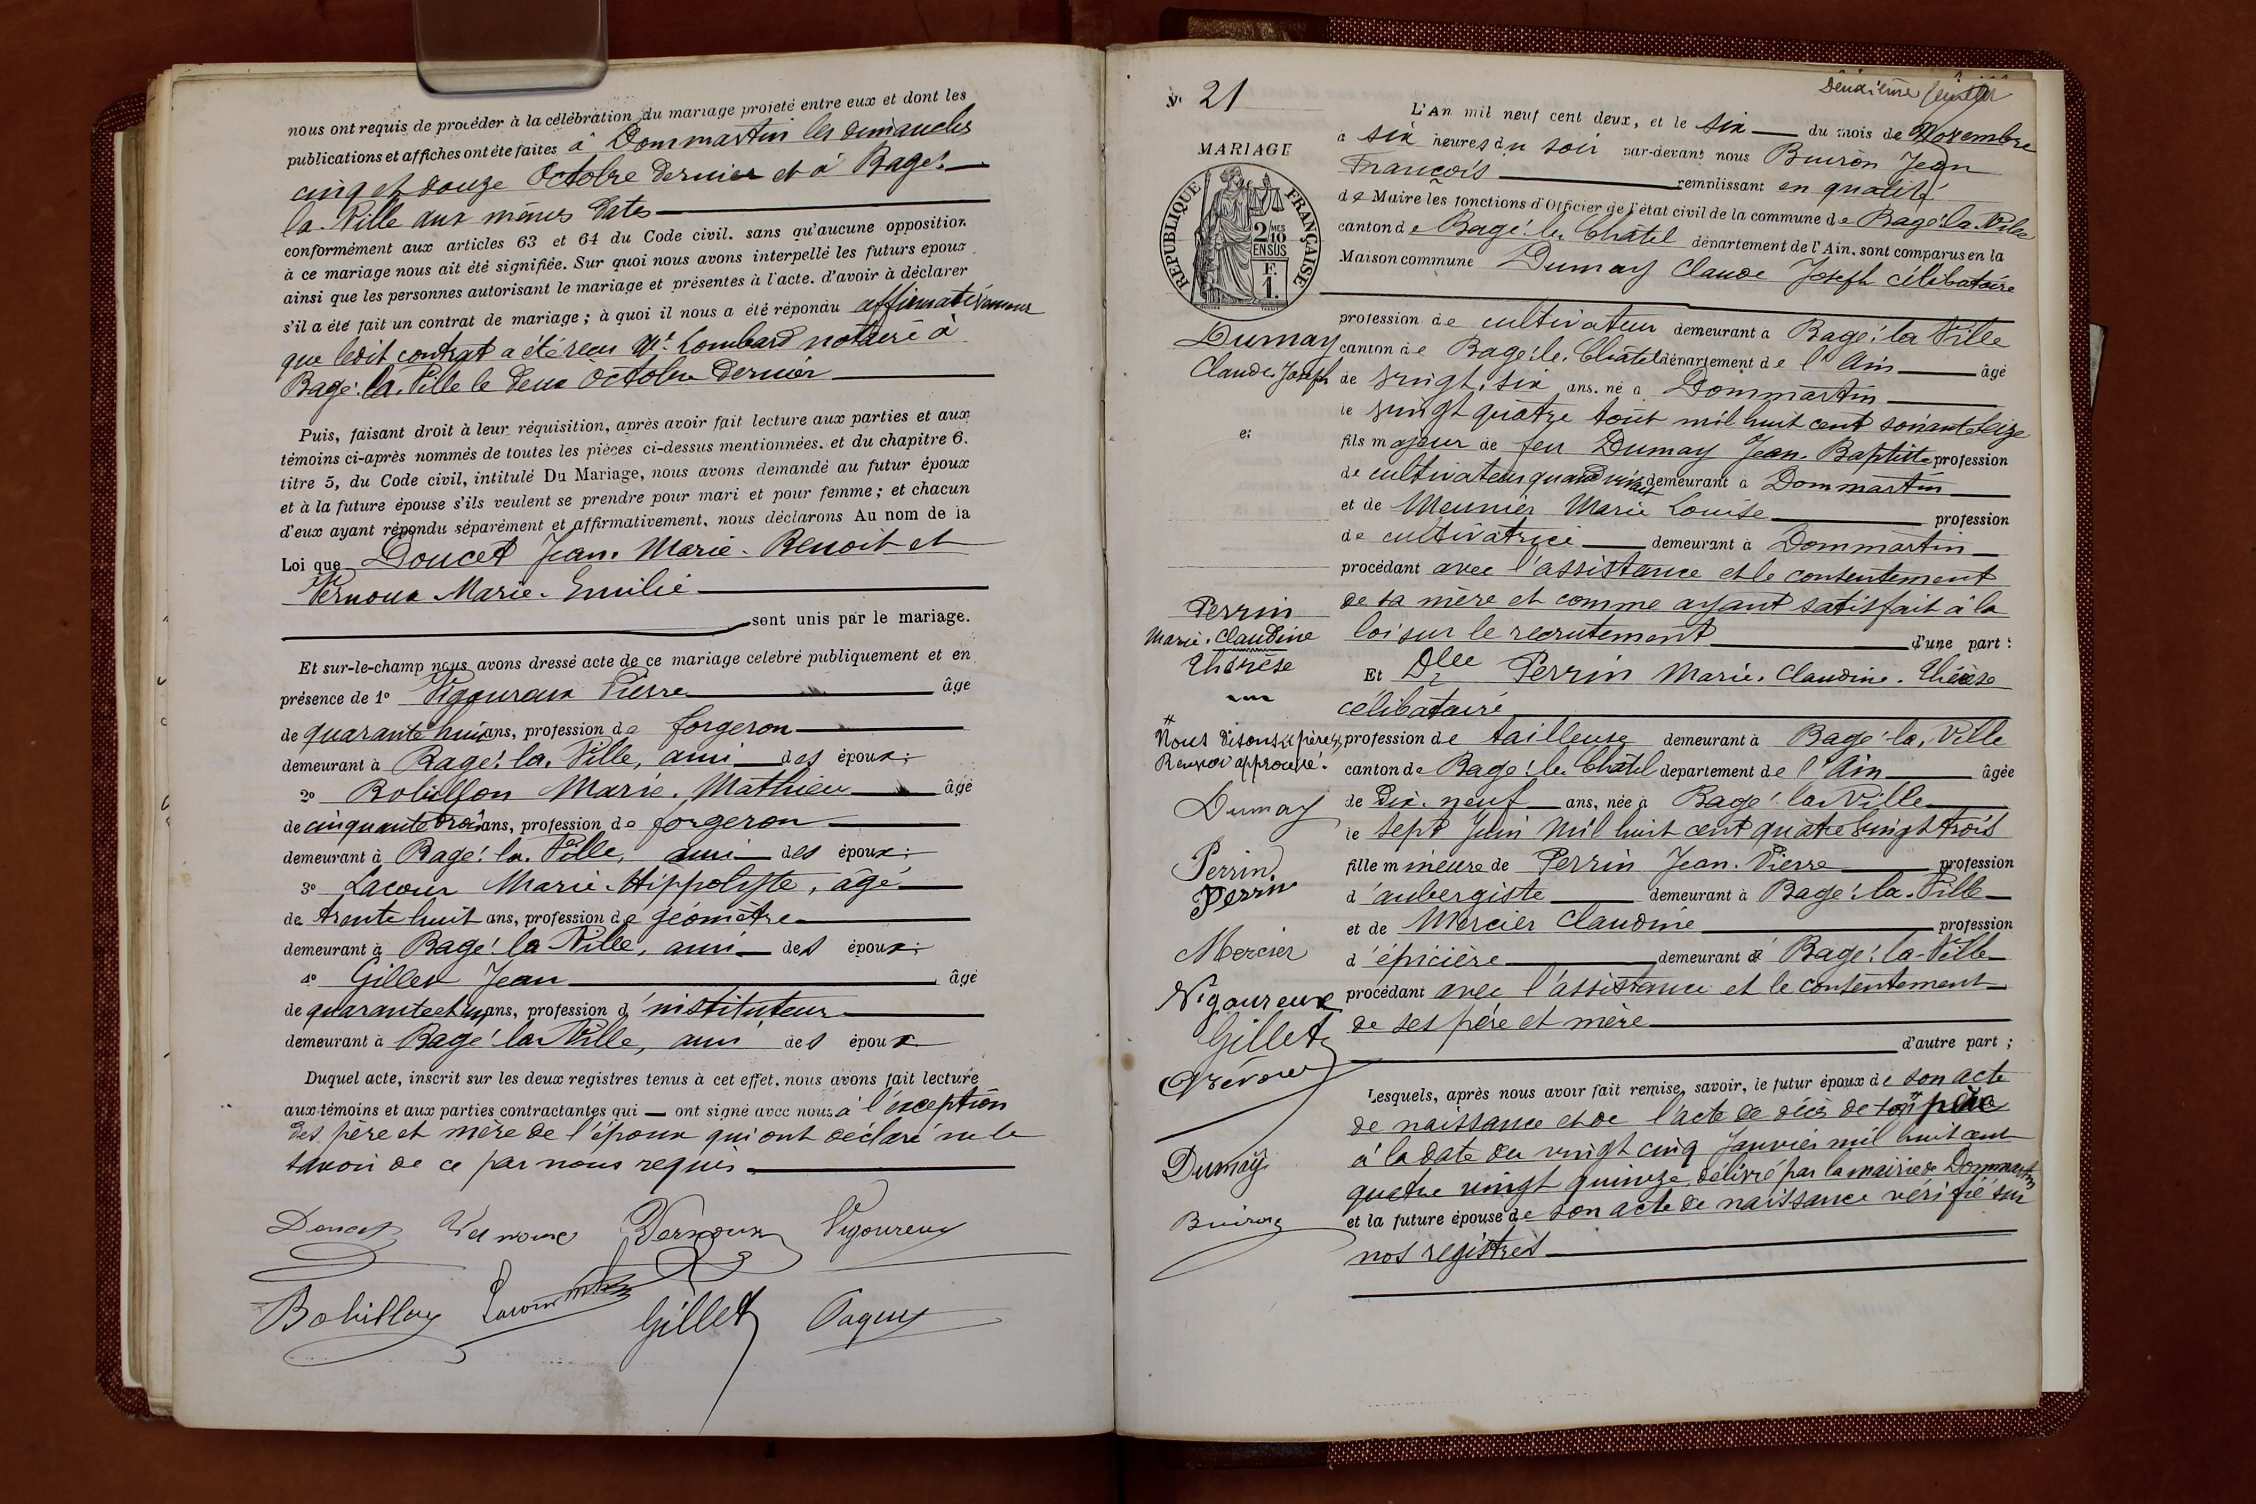 nous ont requis de procéder à la célébration du mariage projeté entre eux et dont les
publications et affiches ont été faites à Dommartin les dimanches
cinq et douze Octobre dernier et à Bagé-
la-Ville aux mêmes dates
conformément aux articles 63 et 64 du Code civil, sans qu'aucune opposition
à ce mariage nous ait été signifiée. Sur quoi nous avons interpellé les futurs époux
ainsi que les personnes autorisant le mariage et présentes à l'acte, d'avoir à déclarer
s'il a été fait un contrat de mariage ; à quoi il nous a été répondu affirmativement
que ledit contrat a été reçu Me Lombard notaire à
Bagé-la-Ville le deux Octobre dernier
Puis, faisant droit à leur réquisition, après avoir fait lecture aux parties et aux
témoins ci-après nommés de toutes les pièces ci-dessus mentionnées, et du chapitre 6.
titre 5, du Code civil, intitulé Du Mariage, nous avons demandé au futur époux
et à la future épouse s'ils veulent se prendre pour mari et pour femme ; et chacun
d'eux ayant répondu séparément et affirmativement, nous déclarons Au nom de la
Loi que Doucet Jean-Marie-Benoit et
Vernoux Marie-Emilie
sont unis par le mariage.
Et sur-le-champ nous avons dressé acte de ce mariage célébré publiquement et en
présence de 1o Vigoureux Pierre âgé
de quarante huit ans, profession de forgeron
demeurant à Bagé-la-Ville, ami des époux ;
2o Robillon Marie-Mathieu âgé
de cinquante trois ans, profession de forgeron
demeurant à Bagé-la-Ville, ami des époux ;
3o Lacour Marie-Hippolyte, âgé
de trente huit ans, profession de géomètre
demeurant à Bagé-la-Ville, ami des époux ;
4o Gillet Jean âgé
de quarante et un ans, profession d'instituteur
demeurant à Bagé-la-Ville, ami des époux
Duquel acte, inscrit sur les deux registres tenus à cet effet, nous avons fait lecture
aux témoins et aux parties contractantes qui ont signé avec nous à l'exception
des père et mère de l'époux qui ont déclaré ne le
savoir de ce par nous requis
Doucet Vernoux Vernoux Vigoureux
Lacour Gillet
Deuxième feuillet
No 21
L'An mil neuf cent deux, et le six du mois de Novembre
à six heures du soir par-devant nous Buiron Jean
François remplissant en qualité
de Maire les fonctions d'Officier de l'état civil de la commune de Bagé-la-Ville
canton de Bagé-le-Châtel département de l'Ain, sont comparus en la
Maison commune Dumay Claude Joseph célibataire
MARIAGE
RÉPUBLIQUE FRANÇAISE
2 MES
10
EN SUS
F.
1.
profession de cultivateur demeurant à Bagé-la-Ville
canton de Bagé-le-Châtel département de l'Ain âgé
de vingt-six ans, né à Dommartin
le vingt quatre août mil huit cent soixante seize
fils majeur de feu Dumay Jean-Baptiste profession
de cultivateur quand vivait demeurant à Dommartin
et de Meunier Marie Louise profession
de cultivatrice demeurant à Dommartin
procédant avec l'assistance et le consentement
de sa mère et comme ayant satisfait à la
loi sur le recrutement d'une part :
Et Dlle Perrin Marie-Claudine-Thérèse
célibataire
profession de tailleuse demeurant à Bagé-la-Ville
canton de Bagé-le-Châtel département de l'Ain âgée
de dix-neuf ans, née à Bagé-la-Ville
le sept Juin mil huit cent quatre vingt trois
fille mineure de Perrin Jean-Pierre profession
d'aubergiste demeurant à Bagé-la-Ville
et de Mercier Claudine profession
d'épicière demeurant à Bagé-la-Ville
procédant avec l'assistance et le consentement
de ses père et mère
d'autre part ;
Lesquels, après nous avoir fait remise, savoir, le futur époux de son acte
de naissance et de l'acte de décès de son père
à la date du vingt cinq Janvier mil huit cent
quatre vingt quinze, délivré par la mairie de Dommartin
et la future épouse de son acte de naissance vérifié sur
nos registres
Dumay
Claude Joseph
et
Perrin
Marie-Claudine
Thérèse
Nous disons « père »
Renvoi approuvé.
Dumay
Perrin
Perrin
Mercier
Vigoureux
Gillet
Dumay
Buiron